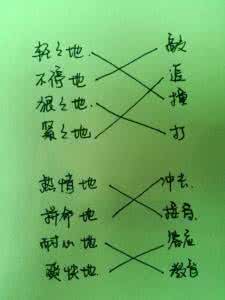 轻轻地 敲
不停地 追
狠狠地 撞
紧紧地 打
热情地 冲去
拼命地 接待
耐心地 答应
爽快地 教育